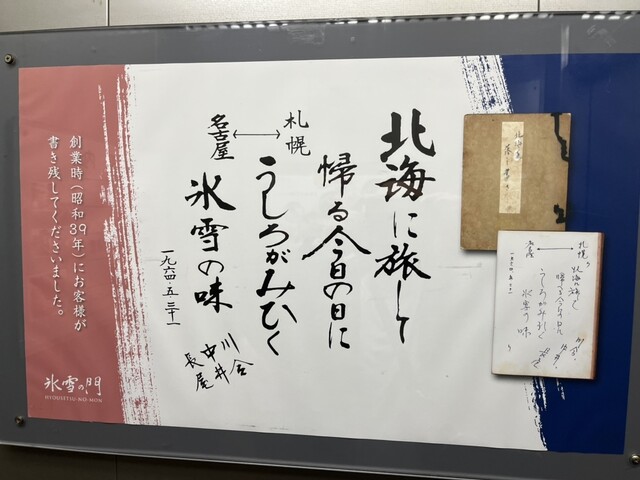 北海に旅して
帰る今日の日に
札幌
↔
名古屋
うしろがみひく
氷雪の味
一九六四・五・三十一
川合
中井
長尾
創業時(昭和39年)にお客様が
書き残してくださいました。
氷雪の門
HYOUSETSU-NO-MON
札幌
名古屋
うしろがみひく
氷雪の味